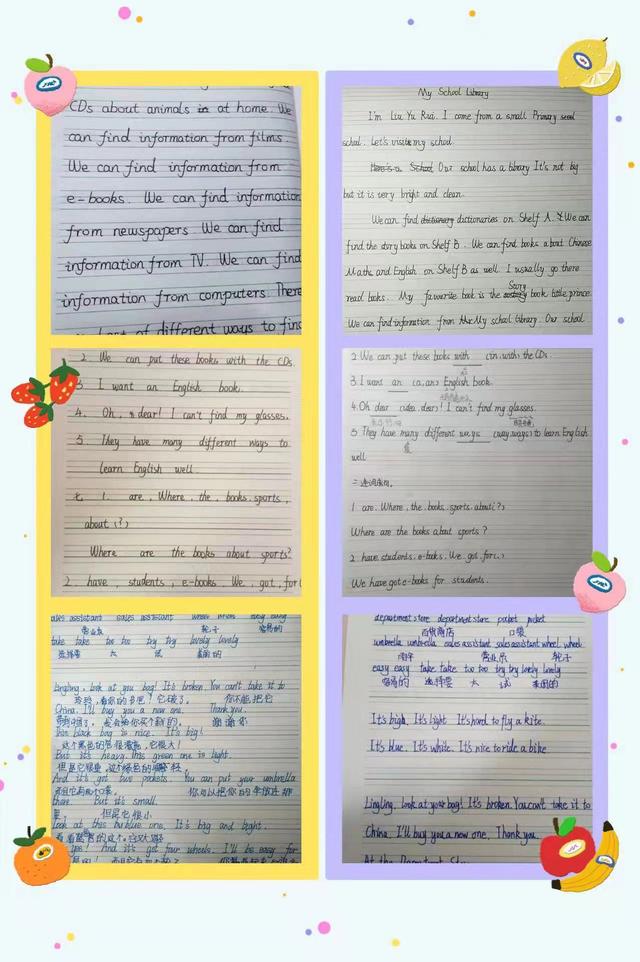 CDs about animals at home. We
can find information from films.
We can find information from
e-books. We can find information
from newspapers We can find
information from TV. We can find
information from computers. There
of different ways to find
My School Library
I'm Liu Yu Rui. I come from a small Primary
school. Let's visit my school.
Here is a School Our school has a library It's not big
but it is very bright and clean.
We can find dictionaries on Shelf A. We can
find the story books on Shelf B. We can find books about Chinese
Maths and English on Shelf B as well. I usually go there
read books. My favourite book is the Story book little prince
We can find information from My school library. Our school
2. We can put these books with the CDs.
3 I want an English book.
4. Oh, dear! I can't find my glasses.
5. They have many different ways to
learn English well.
七 1. are, Where, the, books, sports,
about (?)
Where are the books about sports?
2. have, students, e-books We, got, for(
2. We can put these books with (in, with) the CDs.
3. I want an (a, an) English book.
4. Oh dear (idea, dear)! I can't find my glasses.
5. They have many different ways (way, ways) to learn English
well
二 连词成句。
1. are. Where. the. books. sports. about(?)
Where are the books about sports?
2. have. students. e-books. We. got. for(.)
We have got e-books for students.
sales assistant sales assistant wheel wheel easy easy
营业员 轮子 容易的
take take too too try try lovely lovely
选择要 太 试 美丽的
Lingling, look at you bag! It's broken. You can't take it to
China. I'll buy you a new one. Thank you.
black bag is nice. It's big!
But it's heavy. this green one is light.
And it's got two pockets. You can put your umbrella
there. But it's small.
Look at this blue one. It's big and light.
yes! And it's got four wheels. I'll be easy for
department store department store pocket pocket
百货商店 口袋
umbrella umbrella sales assistant sales assistant wheel wheel
雨伞 营业员 轮子
easy easy take take too too try try lovely lovely
容易的 选择要 太 试 美丽的
It's high. It's light It's hard to fly a kite.
It's blue. It's white. It's nice to ride a bike
Lingling, look at your bag! It's broken. You can't take it to
China. I'll buy you a new one. Thank you.
At the Department Store